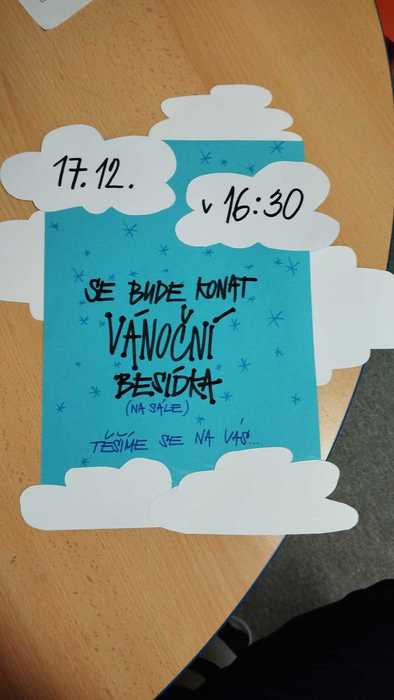 17.12.
v 16:30
SE BUDE KONAT
VÁNOČNÍ
BESÍDKA
(NA SÁLE)
TĚŠÍME SE NA VÁS...